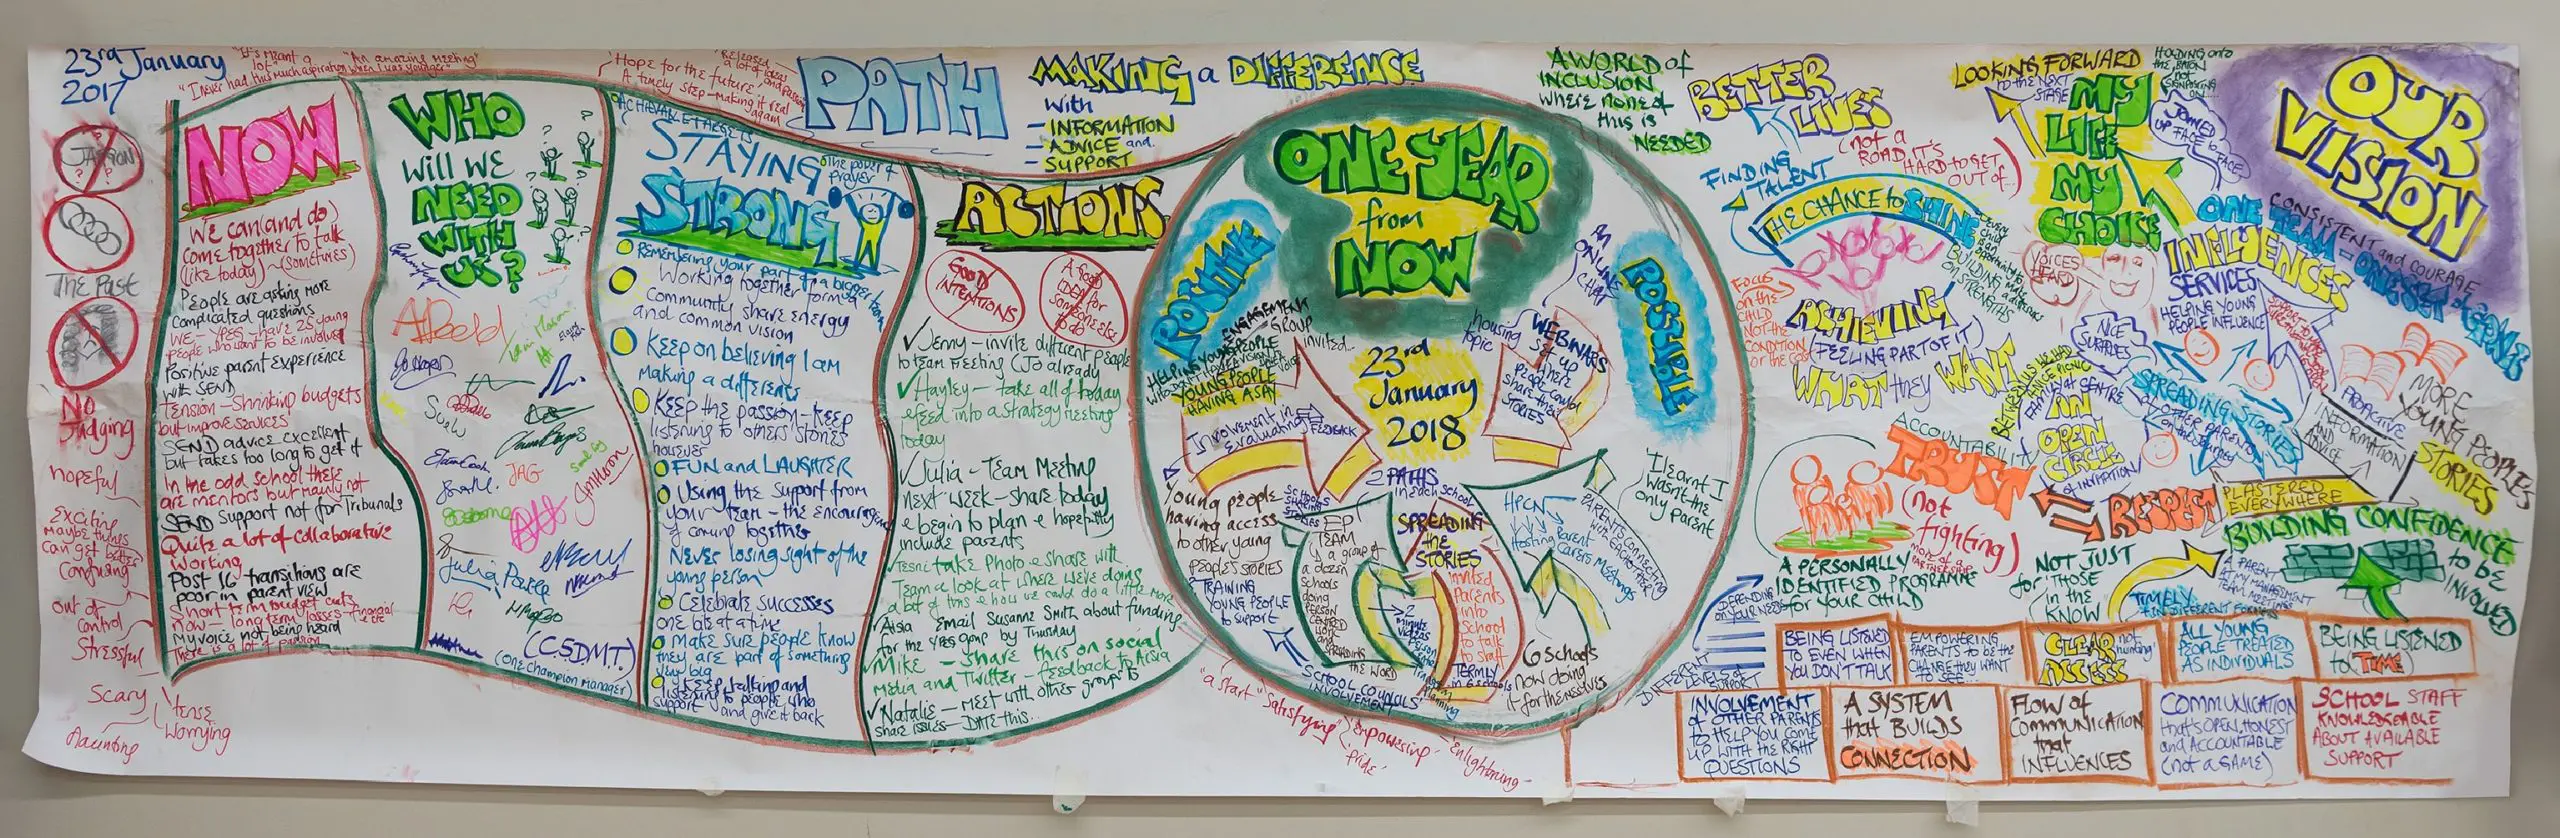 23rd January
2017
"It's meant a
lot"
"An amazing meeting"
"I never had this much aspiration when I was younger"
JARGON
The Past
No
Judging
hopeful
Exciting
maybe things
can get better
Confusing
out of
control
Stressful
Scary
tense
Worrying
daunting
NOW
We can (and do)
come together to talk
(like today) ~ (sometimes)
People are asking more
complicated questions
WE - YPEG - have 25 young
people who want to be involved
Positive parent experience
with SEND
Tension - shrinking budgets
but improve services
SEND advice excellent
but takes too long to get it
In the odd school there
are mentors but mainly not
SEND support not for Tribunals
Quite a lot of collaborative
working
Post 16 transitions are
poor in parent view
Short term budget cuts
now - long term losses - financial
My voice not being heard
There is a lot of passion
WHO
Will we
NEED
WITH
US?
JAG
Julia
(C.S.D.M.T.)
(one champion manager)
Hope for the future
A timely step - making it real
again
Released
a lot of ideas
and passion
ACHIEVABLE TARGETS
STAYING
the power of
prayer
STRONG
Remembering your part of a bigger team
Working together form a
community share energy
and common vision
Keep on believing I am
making a difference
Keep the passion - keep
listening to others stories
however
FUN and LAUGHTER
Using the support from
your team - the encouraging
of coming together
Never losing sight of the
young person
Celebrate successes
one bite at a time
Make sure people know
they are part of something
big
Keep talking and
listening to people who
support and give it back
PATH
MAKING a DIFFERENCE
with
- INFORMATION
- ADVICE and
- SUPPORT
ACTIONS
GOOD
INTENTIONS
A GOOD
IDEA for
someone else
to do
Jenny - invite different people
to team meeting (Jo already
Hayley - take all of today
& feed into a strategy meeting
today
Julia - Team Meeting
next week - share today
& begin to plan & hopefully
include parents
take Photo & share with
Team a look at where we're doing
a lot of this & how we could do a little more
Aisia Email Susanne Smith about funding
for the YPEG group by Thursday
Mike - share this on social
media and Twitter - feedback to Aisia
Natalie - meet with other group to
share issues - DATE this...
ONE YEAR
from
NOW
POSITIVE
POSSIBLE
23rd
January
2018
ENGAGEMENT
GROUP
invited...
HELPING YOUNG PEOPLE
YOUNG PEOPLE
HAVING A SAY
Involvement in
Evaluating
FEEDBACK
Young people
having access
to other young
people's STORIES
TRAINING
YOUNG PEOPLE
to support
SCHOOLS
SHARING
STORIES
EP
TEAM
is a group of
a dozen
schools
doing
PERSON
CENTRED
work and
SPREADING
the WORD
SCHOOL COUNCILS'
INVOLVEMENT
2 PATHS
in each school
SPREADING
the
STORIES
2
minute
videos
invited
Parents
into
School
to talk
to staff
TERMLY
in 6 schools
HPCN
Hosting
Parent
Carers Meetings
PARENTS CONNECTING
WITH EACH OTHER
6 schools
now doing
it for themselves
ONLINE
CHAT
housing
topic
WEBINARS
set up
where
people could
share their
STORIES
I learnt I
wasn't the
only parent
"a start"
"Satisfying"
'Empowering'
'pride'
'Enlightening'
A WORLD of
INCLUSION
where none of
this is
NEEDED
BETTER
LIVES
FINDING
TALENT
(not a
ROAD IT'S
HARD to GET
OUT OF...)
THE CHANCE to SHINE
BUILDING
ON
STRENGTHS
FOCUS
on the
CHILD
NOT the
CONDITION
or the COST
ACHIEVING
(FEELING PART OF IT)
WHAT they WANT
LOOKING FORWARD
to the NEXT
STAGE
MY
LIFE
MY
CHOICE
HOLDING onto
the BATON
not
SIGNPOSTING
ON...
JOINED
UP FACE to
FACE
VOICES
HEARD
OUR
VISION
CONSISTENT and COURAGE
ONE TEAM - ONE SET of GOALS
INFLUENCES
SERVICES
HELPING YOUNG
PEOPLE INFLUENCE
NICE
SURPRISES
SPREADING STORIES
to OTHER PARENTS
on the Journey
AN
OPEN
CIRCLE
of INVITATION
PROACTIVE
INFORMATION
AND
ADVICE
MORE
YOUNG PEOPLE'S
STORIES
ACCOUNTABILITY
TRUST
(not
fighting)
more of a
partnership
RESPECT
PLASTERED
EVERYWHERE
BUILDING CONFIDENCE
to be
INVOLVED
A PERSONALLY
IDENTIFIED PROGRAMME
for YOUR CHILD
NOT JUST
for THOSE
'in the
KNOW'
TIMELY
- in DIFFERENT FORMATS
A PARENT
AT MY MANAGEMENT
TEAM MEETINGS
DEPENDING
on YOUR NEEDS
DIFFERENT
LEVELS of
SUPPORT
BEING LISTENED
TO EVEN WHEN
YOU DON'T TALK
EMPOWERING
PARENTS to BE the
CHANGE THEY WANT
TO SEE...
CLEAR not
'hunting'
ACCESS
ALL YOUNG
PEOPLE TREATED
AS INDIVIDUALS
BEING LISTENED
to (TIME)
INVOLVEMENT
OF OTHER PARENTS
TO HELP YOU COME
UP WITH the RIGHT
QUESTIONS
A SYSTEM
that BUILDS
CONNECTION
FLOW of
COMMUNICATION
that
INFLUENCES
COMMUNICATION
that's OPEN, HONEST
and ACCOUNTABLE
(not a GAME)
SCHOOL STAFF
KNOWLEDGEABLE
ABOUT AVAILABLE
SUPPORT